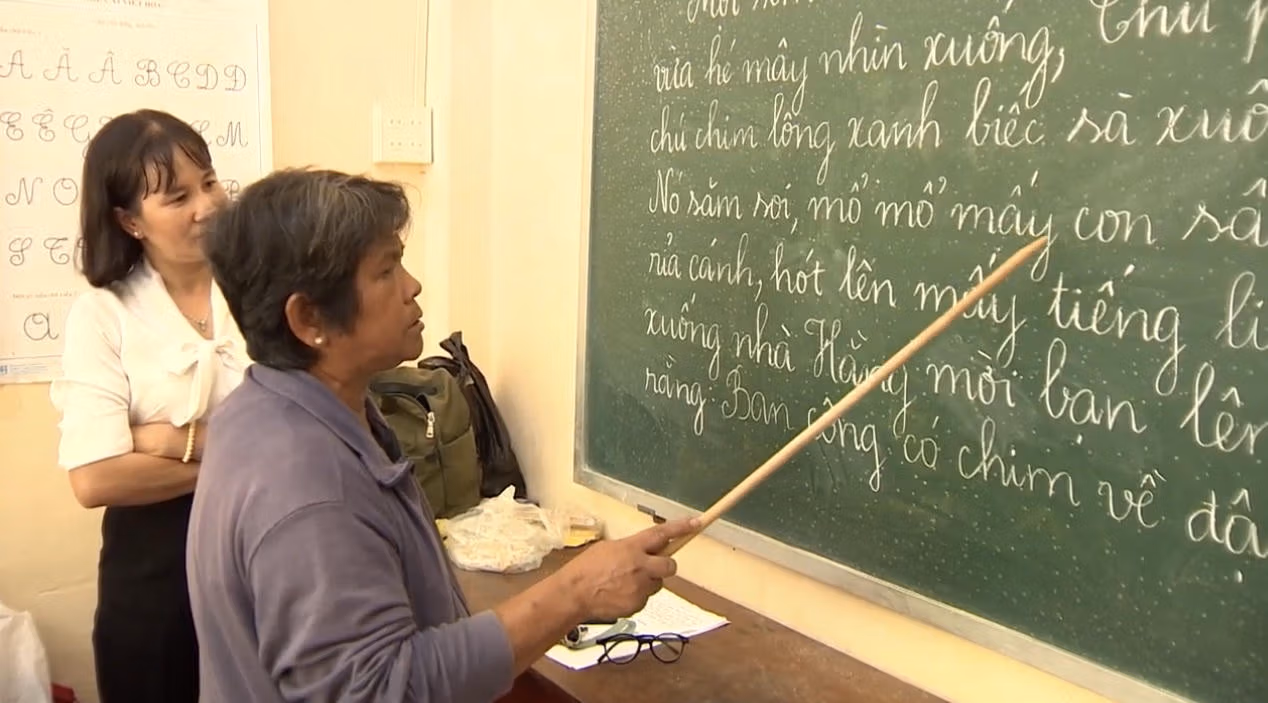 A Ă Â B C D Đ
E Ê G M
N O
S T
a
Một sớm
vừa hé mây nhìn xuống, Thu p
chú chim lông xanh biếc sà xuố
Nó săm soi, mổ mổ mấy con sâ
rỉa cánh, hót lên mấy tiếng li
xuống nhà Hằng mời bạn lên
rằng: Ban công có chim về đậ